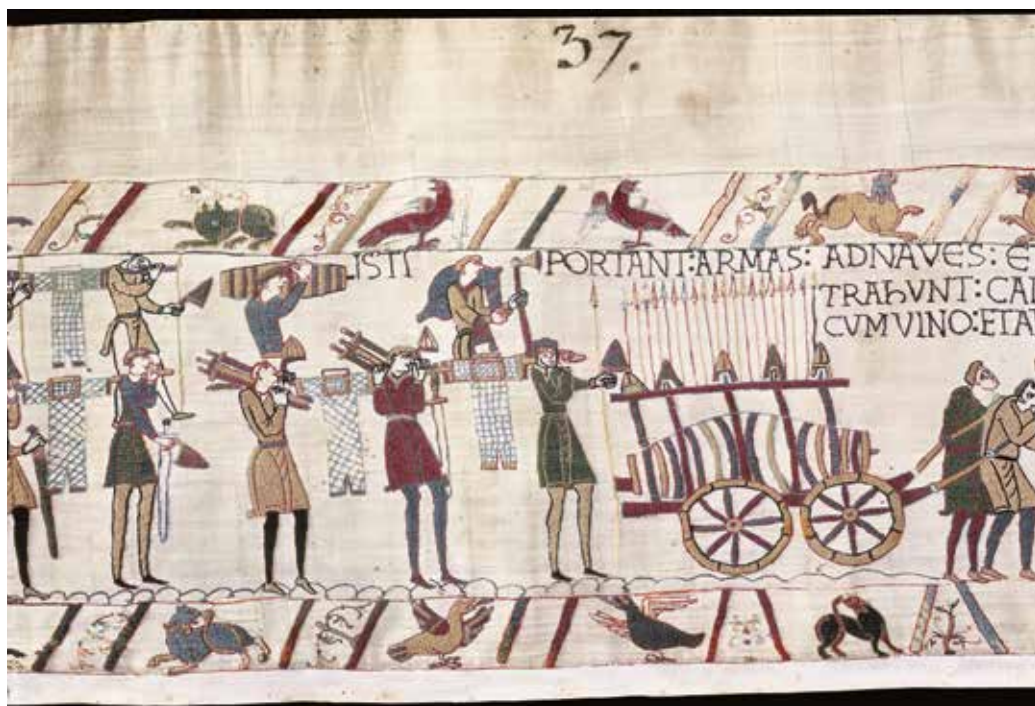 37.
ISTI PORTANT:ARMAS: ADNAVES: E
TRAhUNT:CAR
CUMVINO:ETA